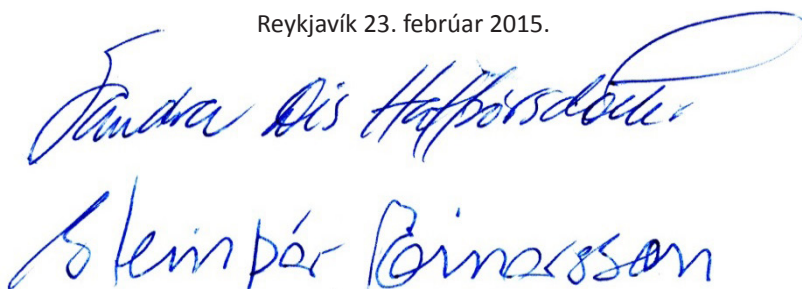 Reykjavík 23. febrúar 2015.
Sandra Dís Hafþórsdóttir
Steinþór